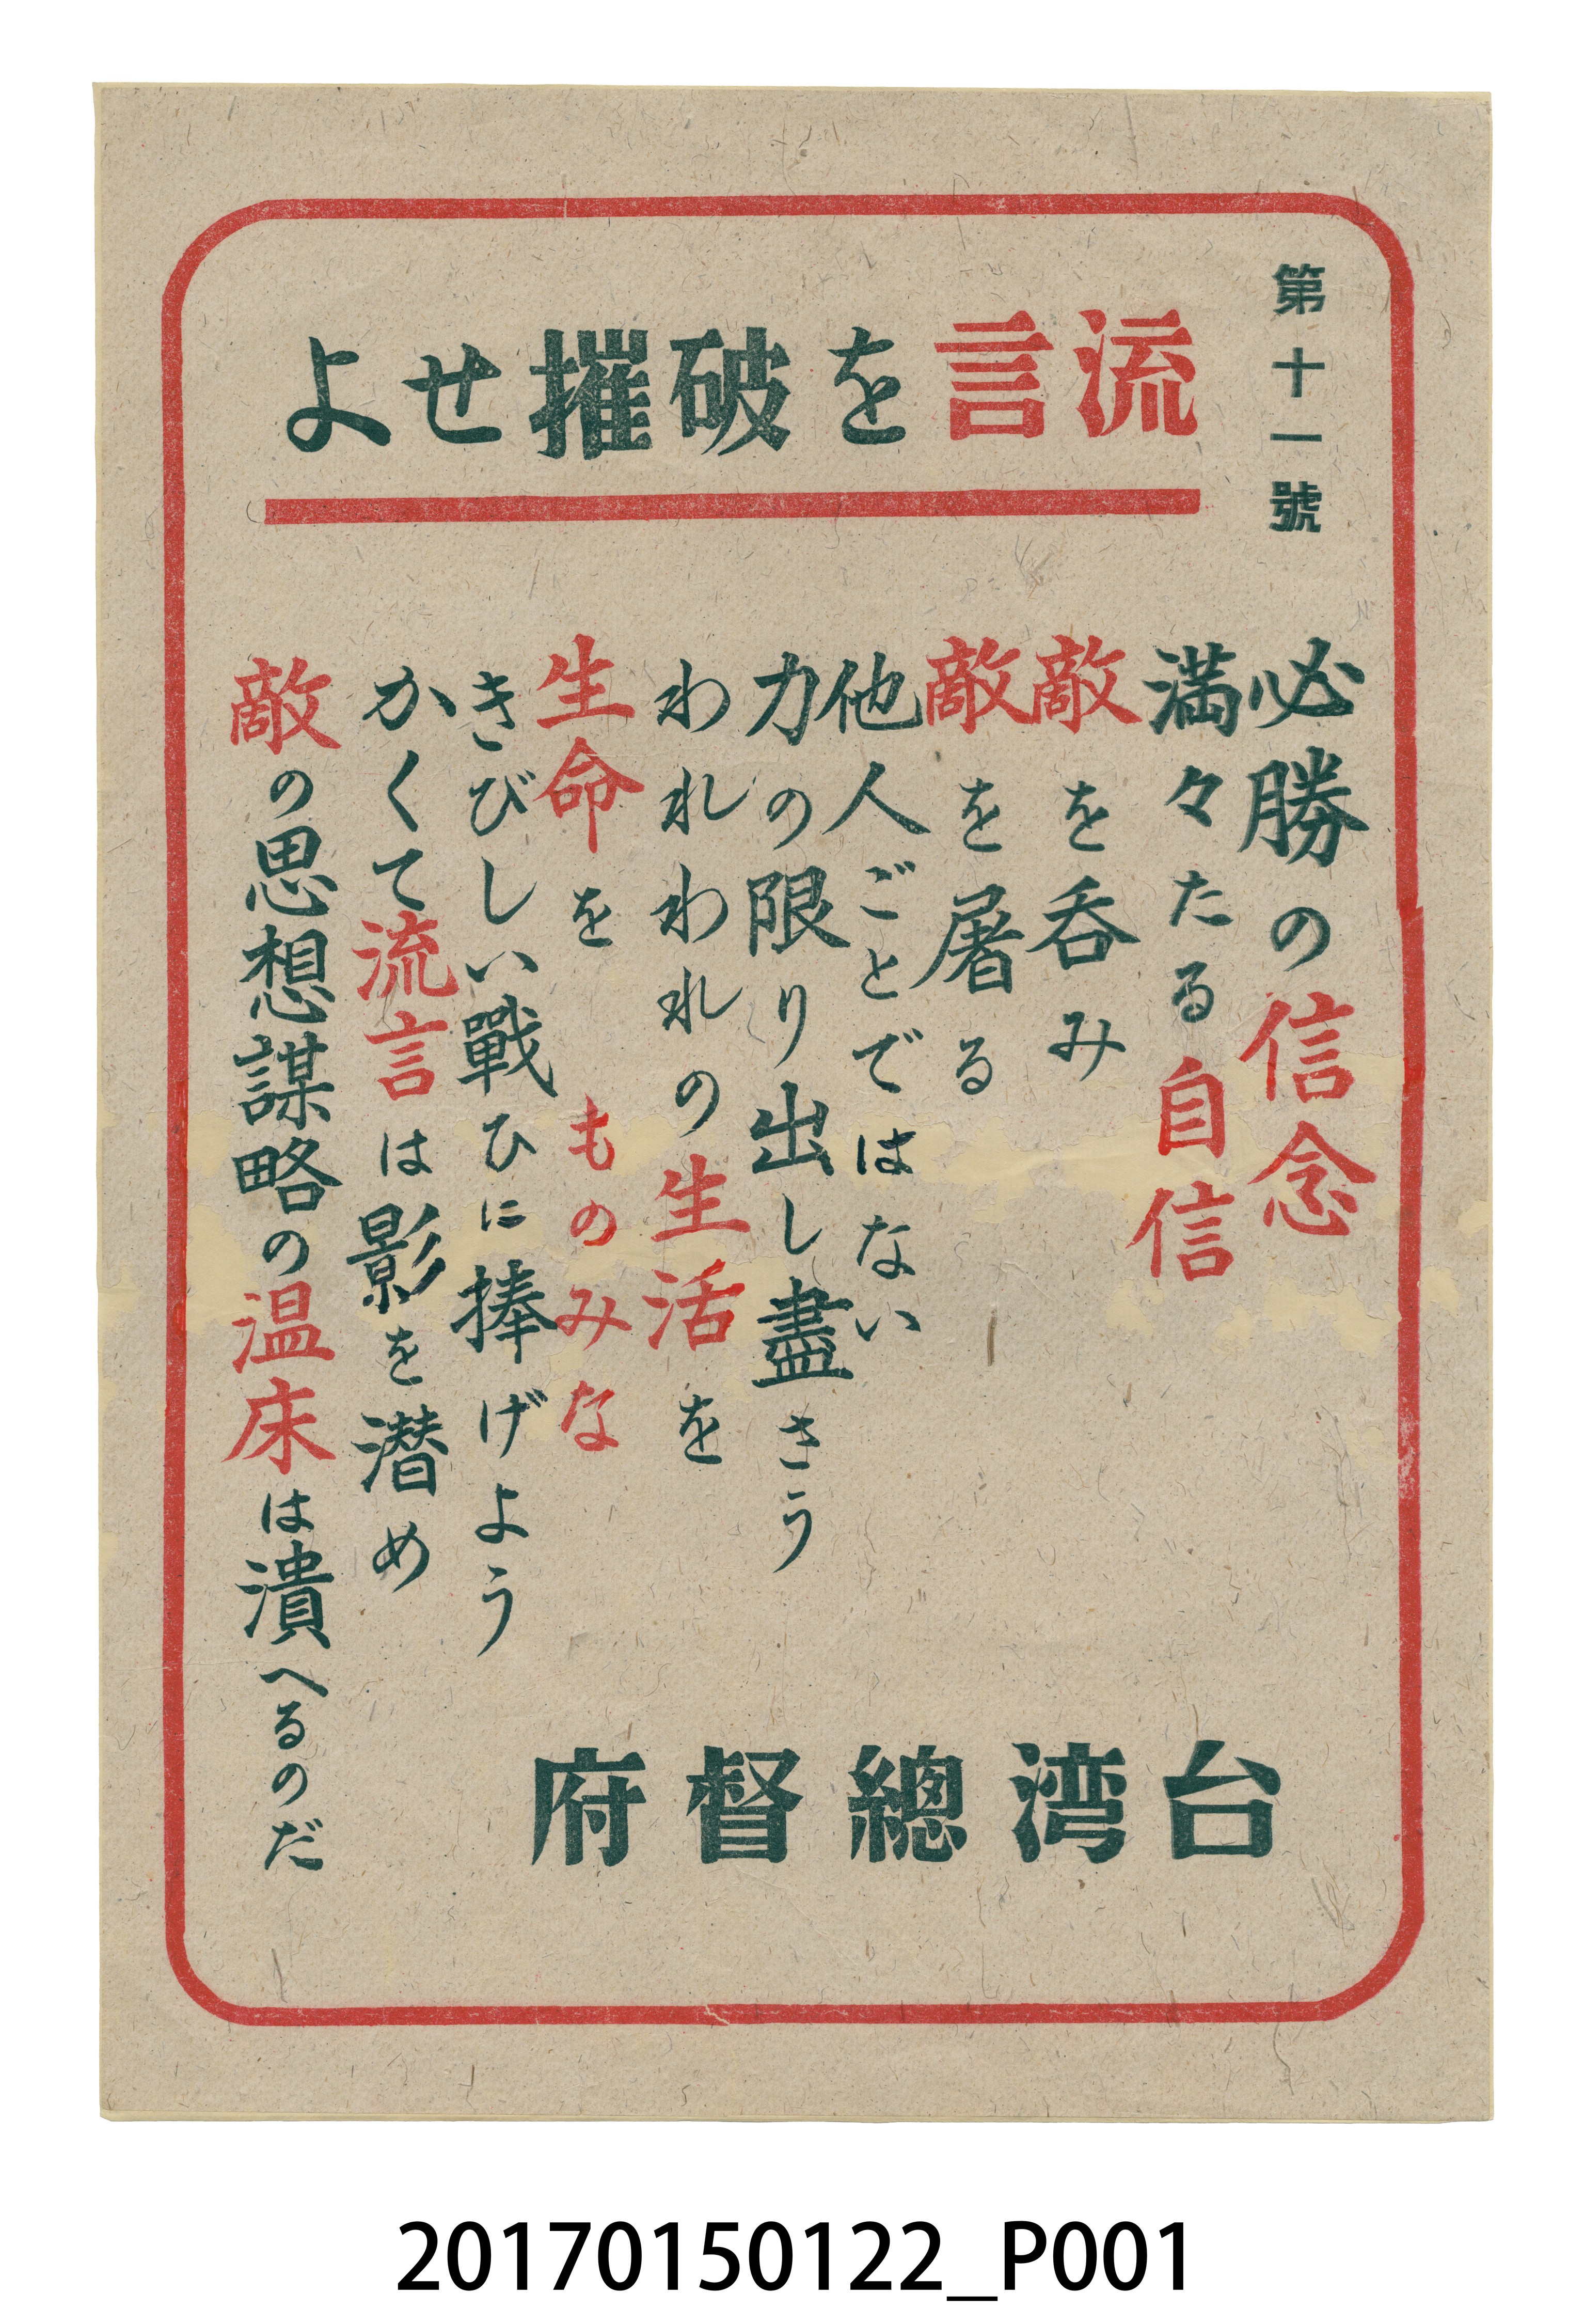 第十一號
流言を破摧せよ
必勝の信念
満々たる自信
敵を呑み
敵を屠る
他人ごとではない
力の限り出し盡さう
われわれの生活を
生命を ものみな
きびしい戰ひに捧げよう
かくて流言は影を潜め
敵の思想謀略の温床は潰へるのだ
台湾總督府
20170150122_P001